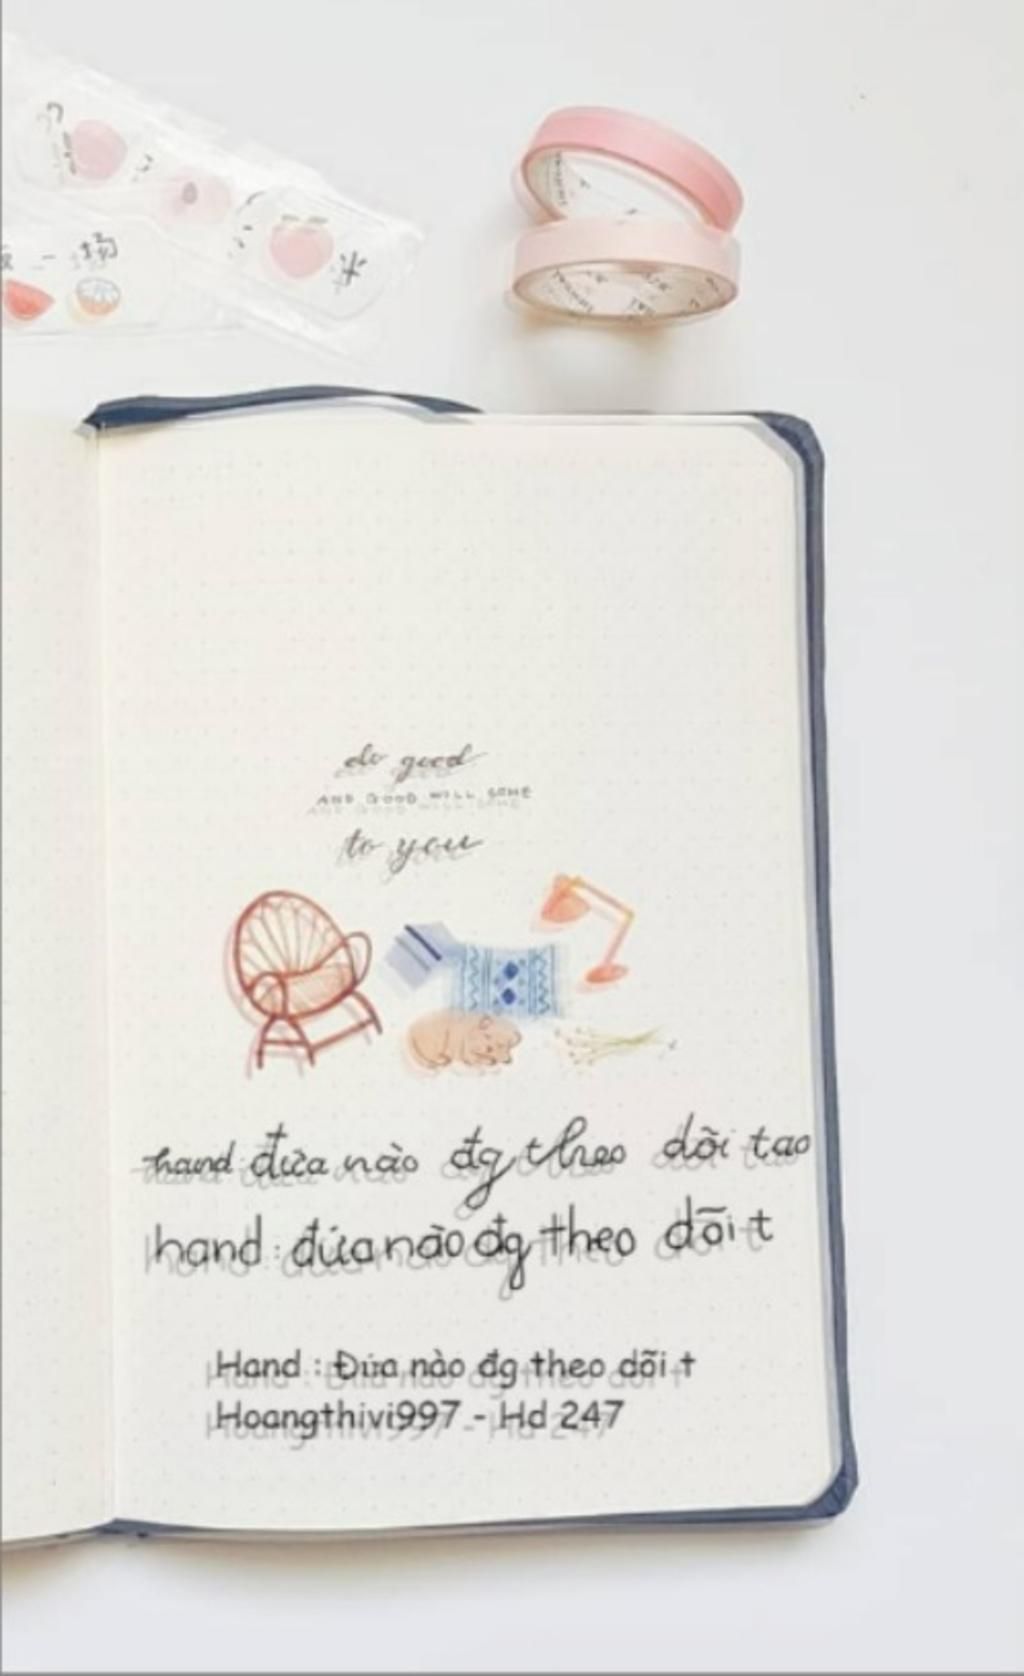 do good
AND GOOD WILL COME
to you
hand đứa nào đg theo dõi tao
hand : đứa nào đg theo dõi t
Hand : Đứa nào đg theo dõi t
Hoangthivi997 - Hd 247